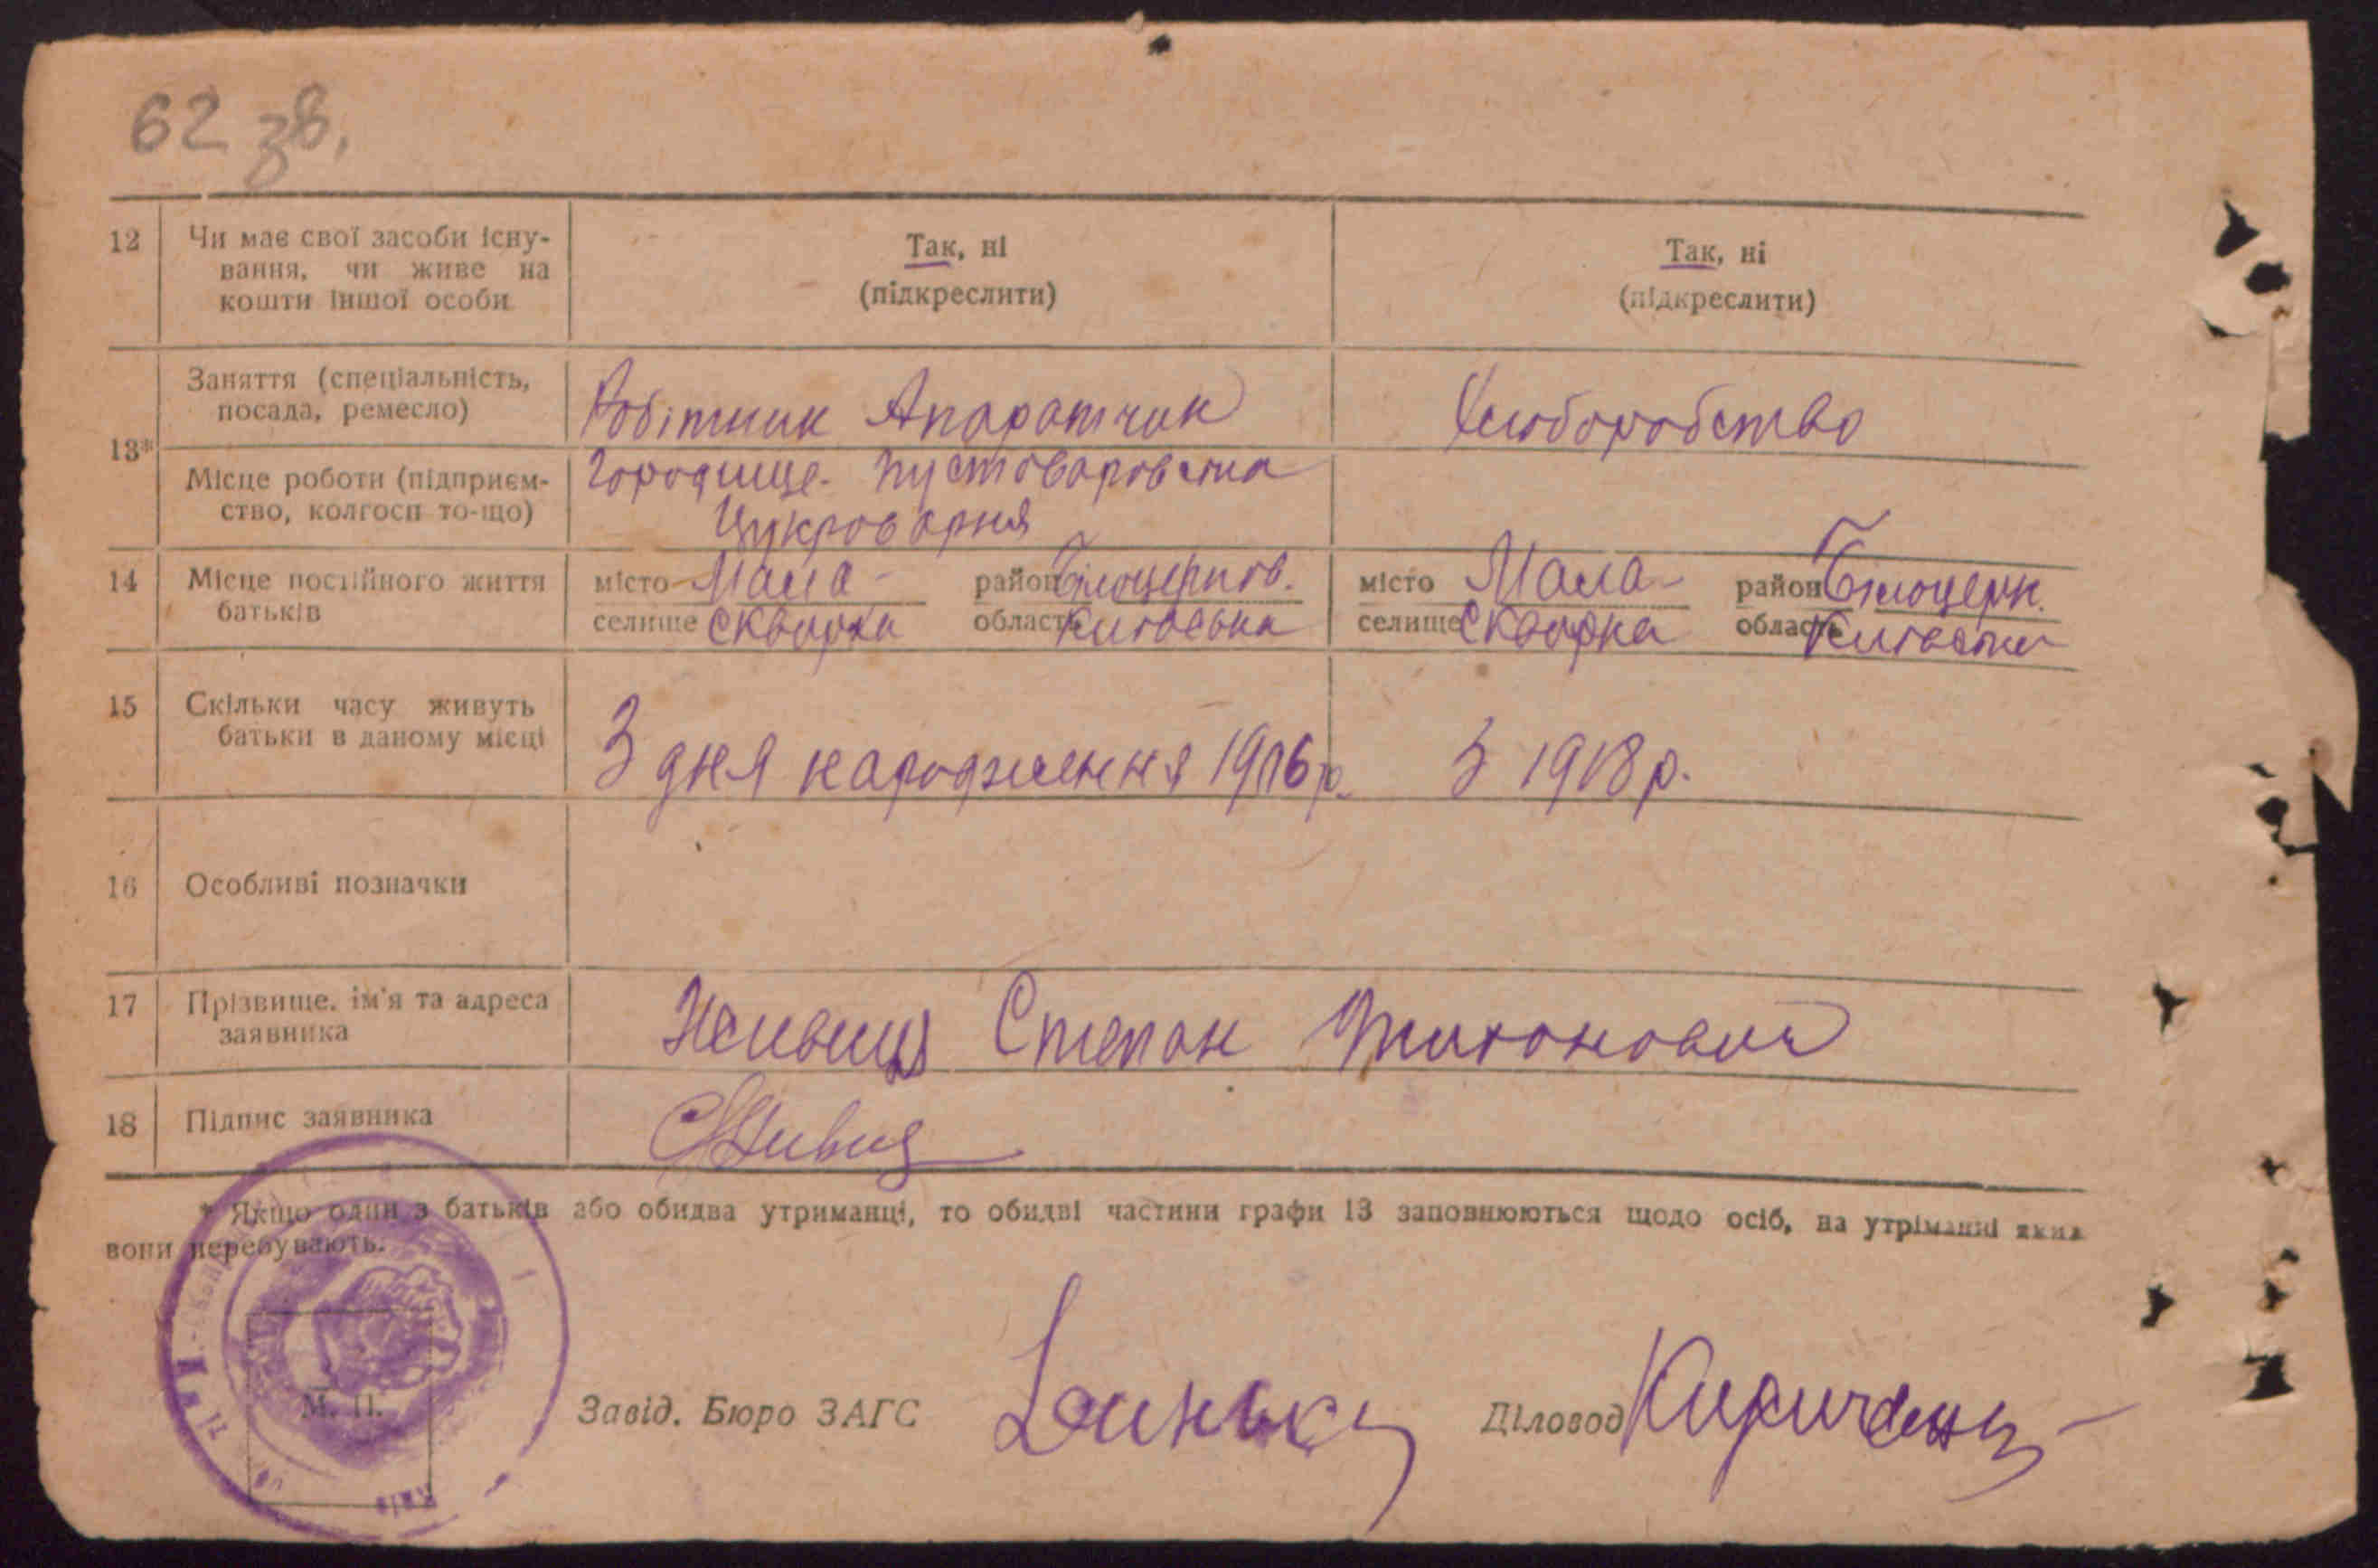 62 зв.
12 Чи має свої засоби існу-
вання, чи живе на
кошти іншої особи
Так, ні
(підкреслити)
Так, ні
(підкреслити)
13*
Заняття (спеціальність,
посада, ремесло)
Робітник Апаратчик
Хліборобство
Місце роботи (підприєм-
ство, колгосп то-що)
Городище-Пустоваровська
Цукроварня
14 Місце постійного життя
батьків
місто Мала- район Білоцерков.
селище Сквирка область Київська
місто Мала- район Білоцерк.
селище Сквирка область
15 Скільки часу живуть
батьки в даному місці
З дня народження 1916 р.
З 1918 р.
16 Особливі позначки
17 Прізвище, ім'я та адреса
заявника
Степан
18 Підпис заявника
* Якщо один з батьків або обидва утриманці, то обидві частини графи 13 заповнюються щодо осіб, на утріманні яких
вони перебувають.
М. П.
Завід. Бюро ЗАГС
Діловод